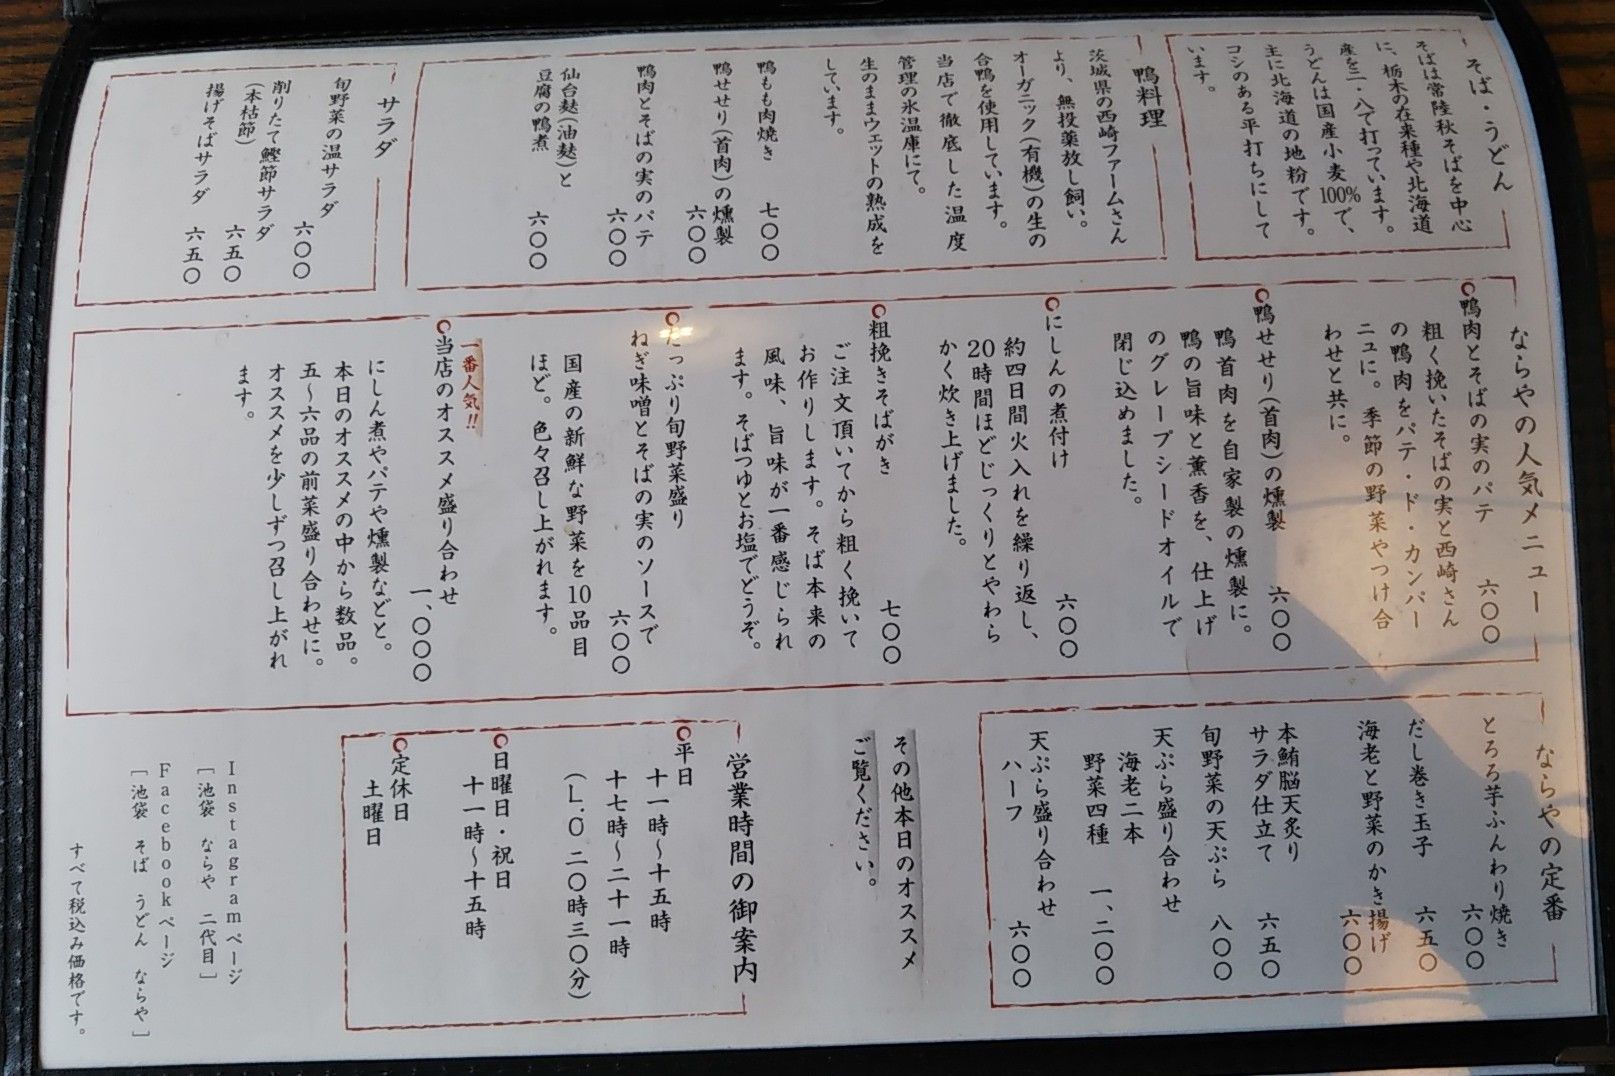 そば・うどん
そばは常陸秋そばを中心
に、栃木の在来種や北海道
産を二・八で打っています。
うどんは国産小麦100%で、
主に北海道の地粉です。
コシのある平打ちにして
います。
鴨料理
茨城県の西崎ファームさん
より、無投薬放し飼い。
オーガニック(有機)の生の
合鴨を使用しています。
当店で徹底した温度
管理の氷温庫にて。
生のままウェットの熟成を
しています。
鴨もも肉焼き 七〇〇
鴨せせり(首肉)の燻製
六〇〇
鴨肉とそばの実のパテ
六〇〇
仙台麸(油麸)と
豆腐の鴨煮 六〇〇
サラダ
旬野菜の温サラダ
六〇〇
削りたて鰹節サラダ
(本枯節) 六五〇
揚げそばサラダ
六五〇
ならやの人気メニュー
鴨肉とそばの実のパテ 六〇〇
粗く挽いたそばの実と西崎さん
の鴨肉をパテ・ド・カンパー
ニュに。季節の野菜やつけ合
わせと共に。
鴨せせり(首肉)の燻製 六〇〇
鴨首肉を自家製の燻製に。
鴨の旨味と薫香を、仕上げ
のグレープシードオイルで
閉じ込めました。
にしんの煮付け 六〇〇
約四日間火入れを繰り返し、
20時間ほどじっくりとやわら
かく炊き上げました。
粗挽きそばがき 七〇〇
ご注文頂いてから粗く挽いて
お作りします。そば本来の
風味、旨味が一番感じられ
ます。そばつゆとお塩でどうぞ。
たっぷり旬野菜盛り
ねぎ味噌とそばの実のソースで
六〇〇
国産の新鮮な野菜を10品目
ほど。色々召し上がれます。
一番人気!!
当店のオススメ盛り合わせ
一、〇〇〇
にしん煮やパテや燻製などと。
本日のオススメの中から数品。
五〜六品の前菜盛り合わせに。
オススメを少しずつ召し上がれ
ます。
ならやの定番
とろろ芋ふんわり焼き
六〇〇
だし巻き玉子 六五〇
海老と野菜のかき揚げ
六〇〇
本鮪脳天炙り
サラダ仕立て 六五〇
旬野菜の天ぷら 八〇〇
天ぷら盛り合わせ
海老二本
野菜四種 一、二〇〇
天ぷら盛り合わせ
ハーフ 六〇〇
その他本日のオススメ
ご覧ください。
営業時間の御案内
平日
十一時〜十五時
十七時〜二十一時
(L.O 二〇時三〇分)
日曜日・祝日
十一時〜十五時
定休日
土曜日
Instagramページ
[池袋 ならや 二代目]
Facebookページ
[池袋 そば うどん ならや]
すべて税込み価格です。